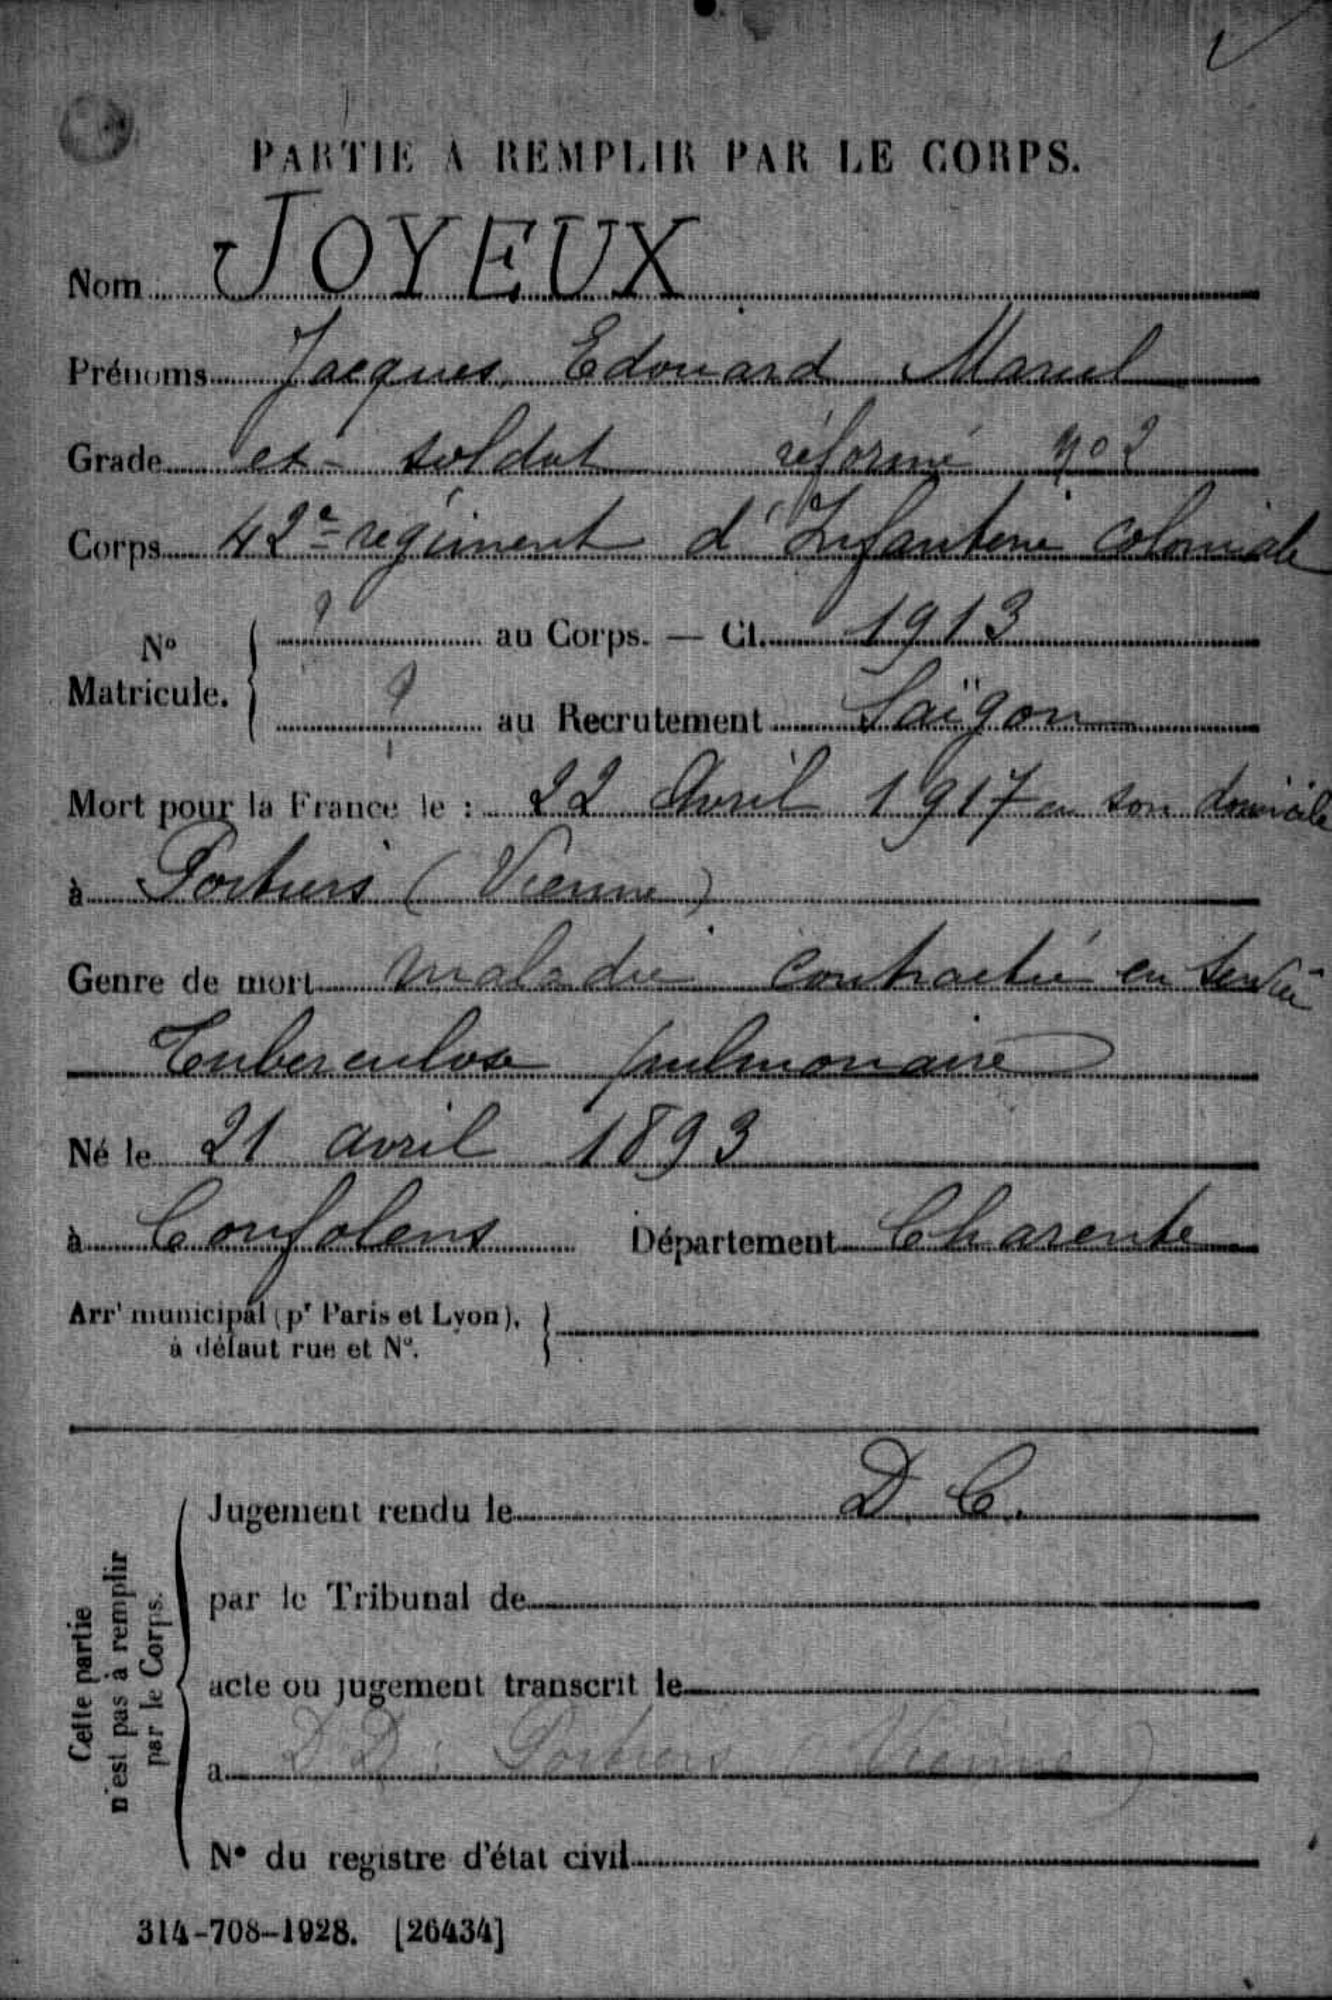 PARTIE A REMPLIR PAR LE CORPS.
Nom JOYEUX
Prénoms Jacques, Edouard Marcel
Grade ex-soldat réformé no 2
Corps 42e régiment d'Infanterie coloniale
No Matricule. { ? au Corps. — Cl. 1913
? au Recrutement Saïgon
Mort pour la France le : 22 Avril 1917 en son domicile
à Poitiers (Vienne)
Genre de mort maladie contractée en service
Tuberculose pulmonaire
Né le 21 avril 1893
à Confolens Département Charente
Arrt municipal (pr Paris et Lyon),
à défaut rue et No.
Cette partie
n'est pas à remplir
par le Corps.
Jugement rendu le D. C.
par le Tribunal de
acte ou jugement transcrit le
à D D : Poitiers (Vienne)
No du registre d'état civil
314-708-1928. [26434]